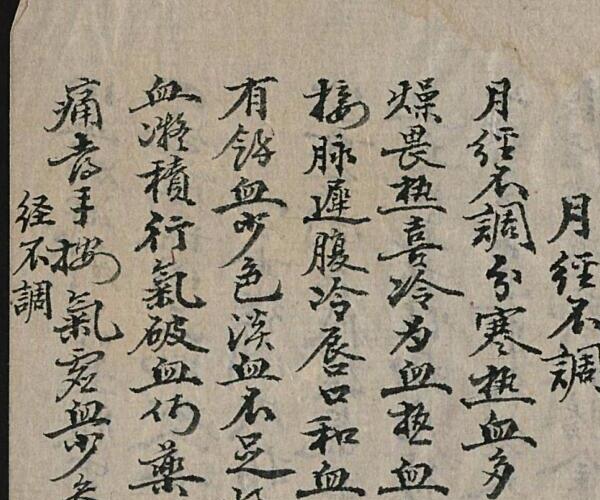 月經不調
月經不調分寒热血多
燥畏热喜冷为血热血
接脉遲腹冷唇口和血
有餘血少色淡血不足
血凝積行氣破血術藥
痛喜手按氣虛血少
経不調